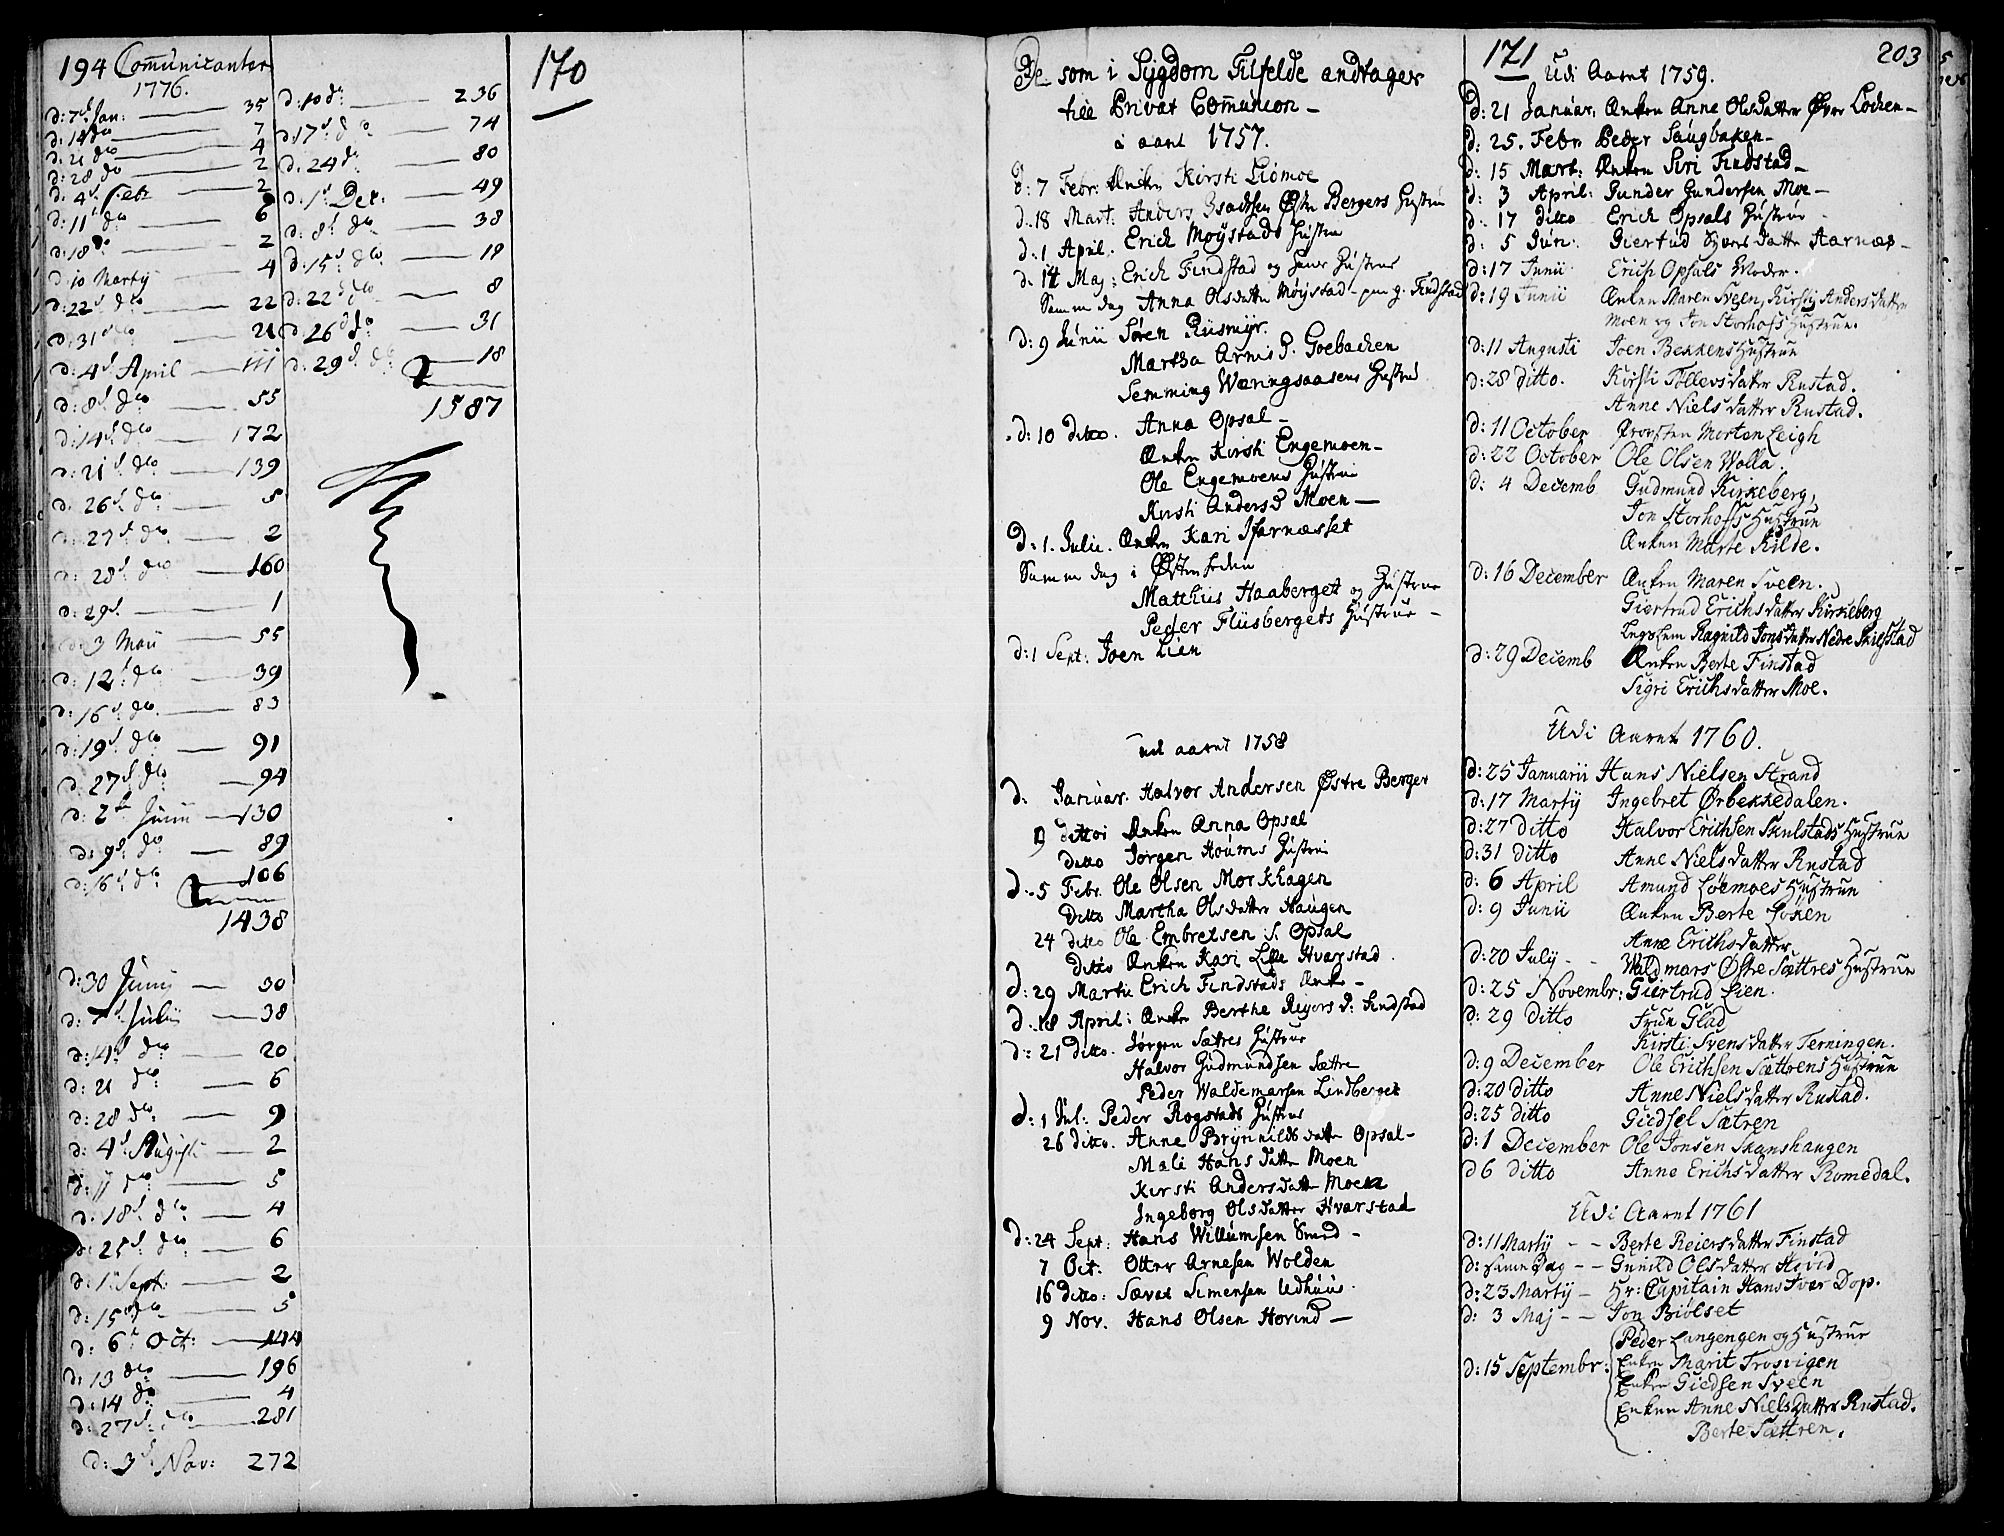 194 Communicanter
1776.
d: 7d Jan: 35
d: 14 do 7
d: 21 do 4
d: 28 do 2
d: 4d Febr 2
d: 11d do 6
d: 18 do 2
d 10 Martij 4
d: 22d do 22
d: 31d do 21
d: 4d April
d: 8d do 55
d: 14d do 172
d: 21d do 139
d: 26d do 5
d: 27d do 2
d: 28d do 160
d: 29d 1
d: 3 Maii 55
d: 12d do 39
d: 16d do 83
d: 19d do 91
d: 27d do 94
d: 2d Junii 130
d: 9d do 89
d: 16d do 106
1438
d: 30 Junij 30
d: 7d Julii 38
d: 14d do 20
d: 21 do 6
d: 28 do 9
d: 4d Augusti 2
d: 11 do 5
d: 18d do 4
d: 25d do 6
d: 1 Sept: 2
d: 15 do 5
d: 6d Oct: 144
d: 13 do 196
d: 14 do 4
d: 27d do 281
d: 3d Nov: 272
d: 10 do 236
d: 17d do 74
d. 24 do 80
d: 1d Dec: 49
d: 8d do 38
d: 15d do 19
d: 22d do 8
d: 26 do 31
d: 29d do 18
1587
170
De som i Sygdom Tilfelde andtages
till Privat Communion
i aaret 1757.
d: 7 Febr: Enken Kirsti Liomoe
d. 18 Mart: Anders Isachsen Østre Bergers Hustru
d. 1 April. Erich Moystads Hustru
d. 14 Maj: Erich Findstad og hans Hustrue
Samme dag Anna Olsdatter Møystad Findstad
d: 9 Junii Søren Riismyr.
Martha Arnis D. Goebachen
Semming Wæringsaasens Hustrue
d: 10 ditto. Anna Opsal
Enken Kirsti Engemoen
Ole Engemoens Hustru
Kirsti Anders D Moen
d: 1. Julii. Enken Kari Ifarnæsset
Samme dag i Østensheden
Matthis Haaberget og Hustrue
Peder Fliisbergets Hustrue
d: 1 Sept: Joen Lien
ud aaret 1758
d. Januar. Halvor Andersen Østre Berger
9 ditto Enken Anna Opsal
ditto Jørgen Houms Hustru
d. 5 Febr. Ole Olsen Morkhagen
ditto Martha Olsdatter Haugen
24 ditto Ole Embretsen S. Opsal
ditto Enken Kari Lille Hvarstad
d: 29 Martii Erich Findstads Enke
d. 18 April: Enken Berthe Reyers D: Findstad
d: 21 ditto. Jørgen Sætres Hustrue
Halvor Gudmundsen Sættre
Peder Waldemarsen Lindberget
d: 1 Jul: Peder Rogstads Hustrue
26 ditto. Anne Brynnilds datter Opsal
Mali Hans datter Moen
Kirsti Andersdatter Moen
Ingeborg Olsdatter Hvarstad
d: 24 Sept: Hans Willumsen Smed
7 Oct: Otter Arnesen Wolden
16 ditto: Sævat Simensen Udhuus
9 Nov. Hans Olsen Hovind
171
203
Udi Aaret 1759.
d: 21 Januar: Enken Anne Olsdatter Øvre Løchen
d: 25. Febr. Peder Saugbaken
d: 15 Mart: Enken Siri Findstad
d: 3 April: Gunder Gundersen Moe
d: 17 ditto Erich Opsals Hustrue
d: 5 Jun: Giertud Syvers datter Aarnæs
d: 17 Junii Erich Opsals Moder.
d: 19 Junii Enken Maren Sveen, Kirstij Andersdatter
Moen og Jon Storhofs Hustrue.
d: 11 Augusti Joen Bekkens Hustrue
d: 28 ditto. Kirsti Tollevsdatter Rustad.
Anne Nielsdatter Rustad.
d: 11 October Provsten Morten Leigh
d: 22 October Ole Olsen Wolla.
d: 4 Decemb Gudmund Kirkeberg,
Jon Storhofs Hustrue
Enken Marte Kilde.
d: 16 December Enken Maren Sveen.
Giertrud Erichsdatter Kirkeberg
Ragnild Jonsdatter Nedre Skulstad
d: 29 Decemb Enken Berte Finstad
Sigri Erichsdatter Moe.
Udi Aaret 1760.
d: 25 Januarii Hans Nielsen Strand
d: 17 Martij Ingebret Ørbekkedalen.
d: 27 ditto Halvor Erichsen Skulstads Hustrue
d: 31 ditto Anne Nielsdatter Rustad
d: 6 April Amund Løemoes Hustrue
d: 9 Junii Enken Berte Løken
Anne Erichsdatter
d: 20 July - - Waldmars Østre Sættres Hustrue
d: 25 Novembr: Giertrud Lien.
d: 29 ditto Frue Glad
Kirsti Svensdatter Terningen.
d: 9 December Ole Erichsen Sættrens Hustrue
d: 20 ditto Anne Nielsdatter Rustad.
d: 25 ditto Giedsel Sætren
d: 1 December Ole Jonsen Skanshaugen
d 6 ditto Anne Erichsdatter Romedal.
Udi Aaret 1761
d: 11 Martij - - Berte Reiersdatter Finstad
d: samme Dag - - Gunild Olsdatter Hovid
d: 23 Martij - Hr: Capitain Hans Iver Dop.
d: 3 Maj - - Jon Biølset
Peder Langengen og Hustrue
d: 15 Septembr: Enken Marit Trosvigen
Enken Giedsen Sveen
Enken Anne Nielsdatter Rustad.
Berte Sættren.